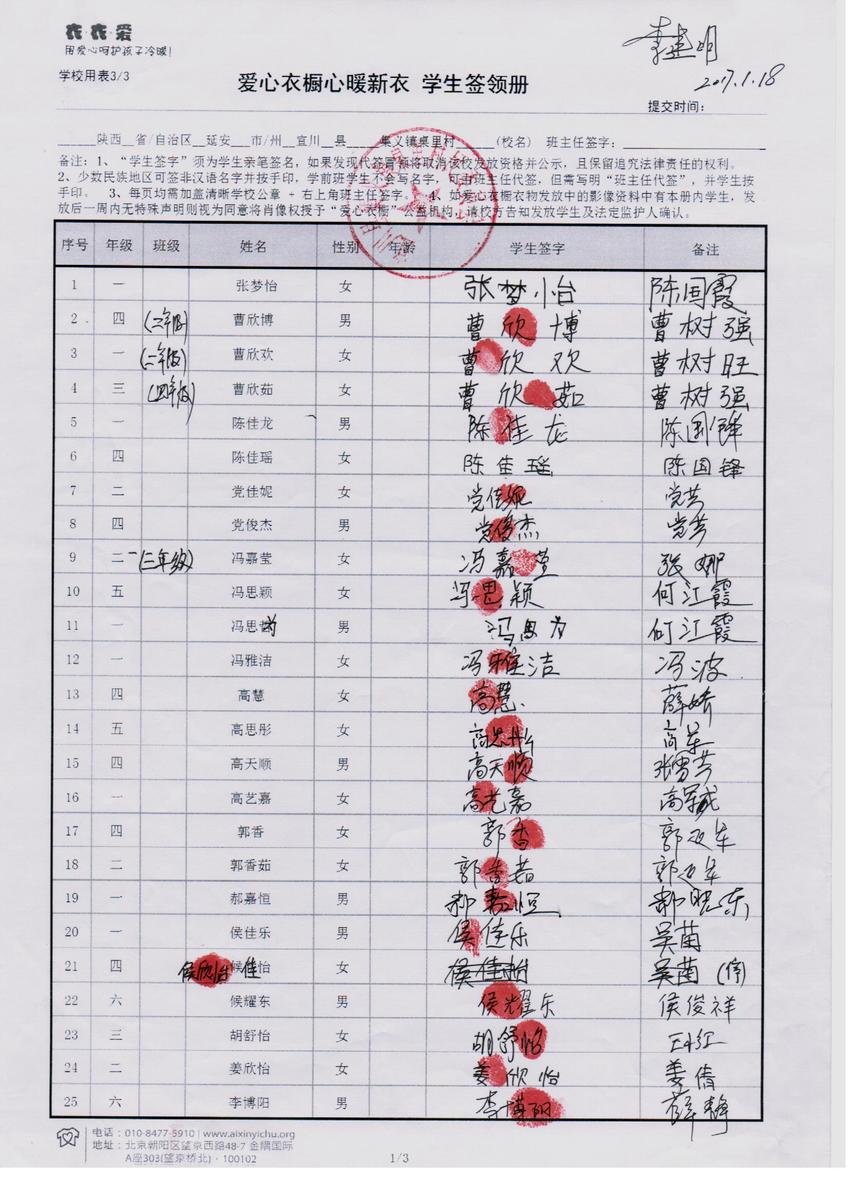 衣·衣·爱
用爱心呵护孩子冷暖!
学校用表3/3
爱心衣橱心暖新衣 学生签领册
李建明
2017.1.18
提交时间:
陕西 省/自治区 延安 市/州 宜川 县 集义镇桌里村 (校名) 班主任签字:
备注:1、“学生签字”须为学生亲笔签名,如果发现代签冒领将取消该校发放资格并公示,且保留追究法律责任的权利。
2、少数民族地区可签非汉语名字并按手印,学前班学生不会写名字,可由班主任代签,但需写明“班主任代签”,并学生按
手印。 3、每页均需加盖清晰学校公章 + 右上角班主任签字。 4、如爱心衣橱衣物发放中的影像资料中有本册内学生,发
放后一周内无特殊声明则视为同意将肖像权授予“爱心衣橱”公益机构,请校方告知发放学生及法定监护人确认。
序号 年级 班级 姓名 性别 年龄 学生签字 备注
1 一 张梦怡 女 张梦怡 陈国霞
2 四 (三年级) 曹欣博 男 曹欣博 曹树强
3 一 (二年级) 曹欣欢 女 曹欣欢 曹树旺
4 三 (四年级) 曹欣茹 女 曹欣茹 曹树强
5 一 陈佳龙 男 陈佳龙 陈国锋
6 四 陈佳瑶 女 陈佳瑶 陈国锋
7 二 党佳妮 女 党佳妮 党芸
8 四 党俊杰 男 党俊杰 党芸
9 二 (三年级) 冯嘉莹 女 冯嘉莹 张娜
10 五 冯思颖 女 冯思颖 何江霞
11 一 冯思 男 冯思为 何江霞
12 一 冯雅洁 女 冯雅洁 冯波
13 四 高慧 女 高慧 薛娇
14 五 高思彤 女 高思彤 高军
15 四 高天顺 男 高天顺 张雪芳
16 一 高艺嘉 女 高艺嘉 高军成
17 四 郭香 女 郭香 郭延军
18 二 郭香茹 女 郭香茹 郭延军
19 一 郝嘉恒 男 郝嘉恒 郝晓东
20 一 侯佳乐 男 侯佳乐 吴苗
21 四 侯欣怡 侯佳怡 女 侯佳怡 吴苗
22 六 候耀东 男 侯耀东 侯俊祥
23 三 胡舒怡 女 胡舒怡
24 二 姜欣怡 女 姜欣怡 姜倩
25 六 李博阳 男 李博阳 薛静
电话:010-8477-5910 | www.aixinyichu.org
地址:北京朝阳区望京西路48-7 金隅国际
A座303(望京桥北)·100102
1/3